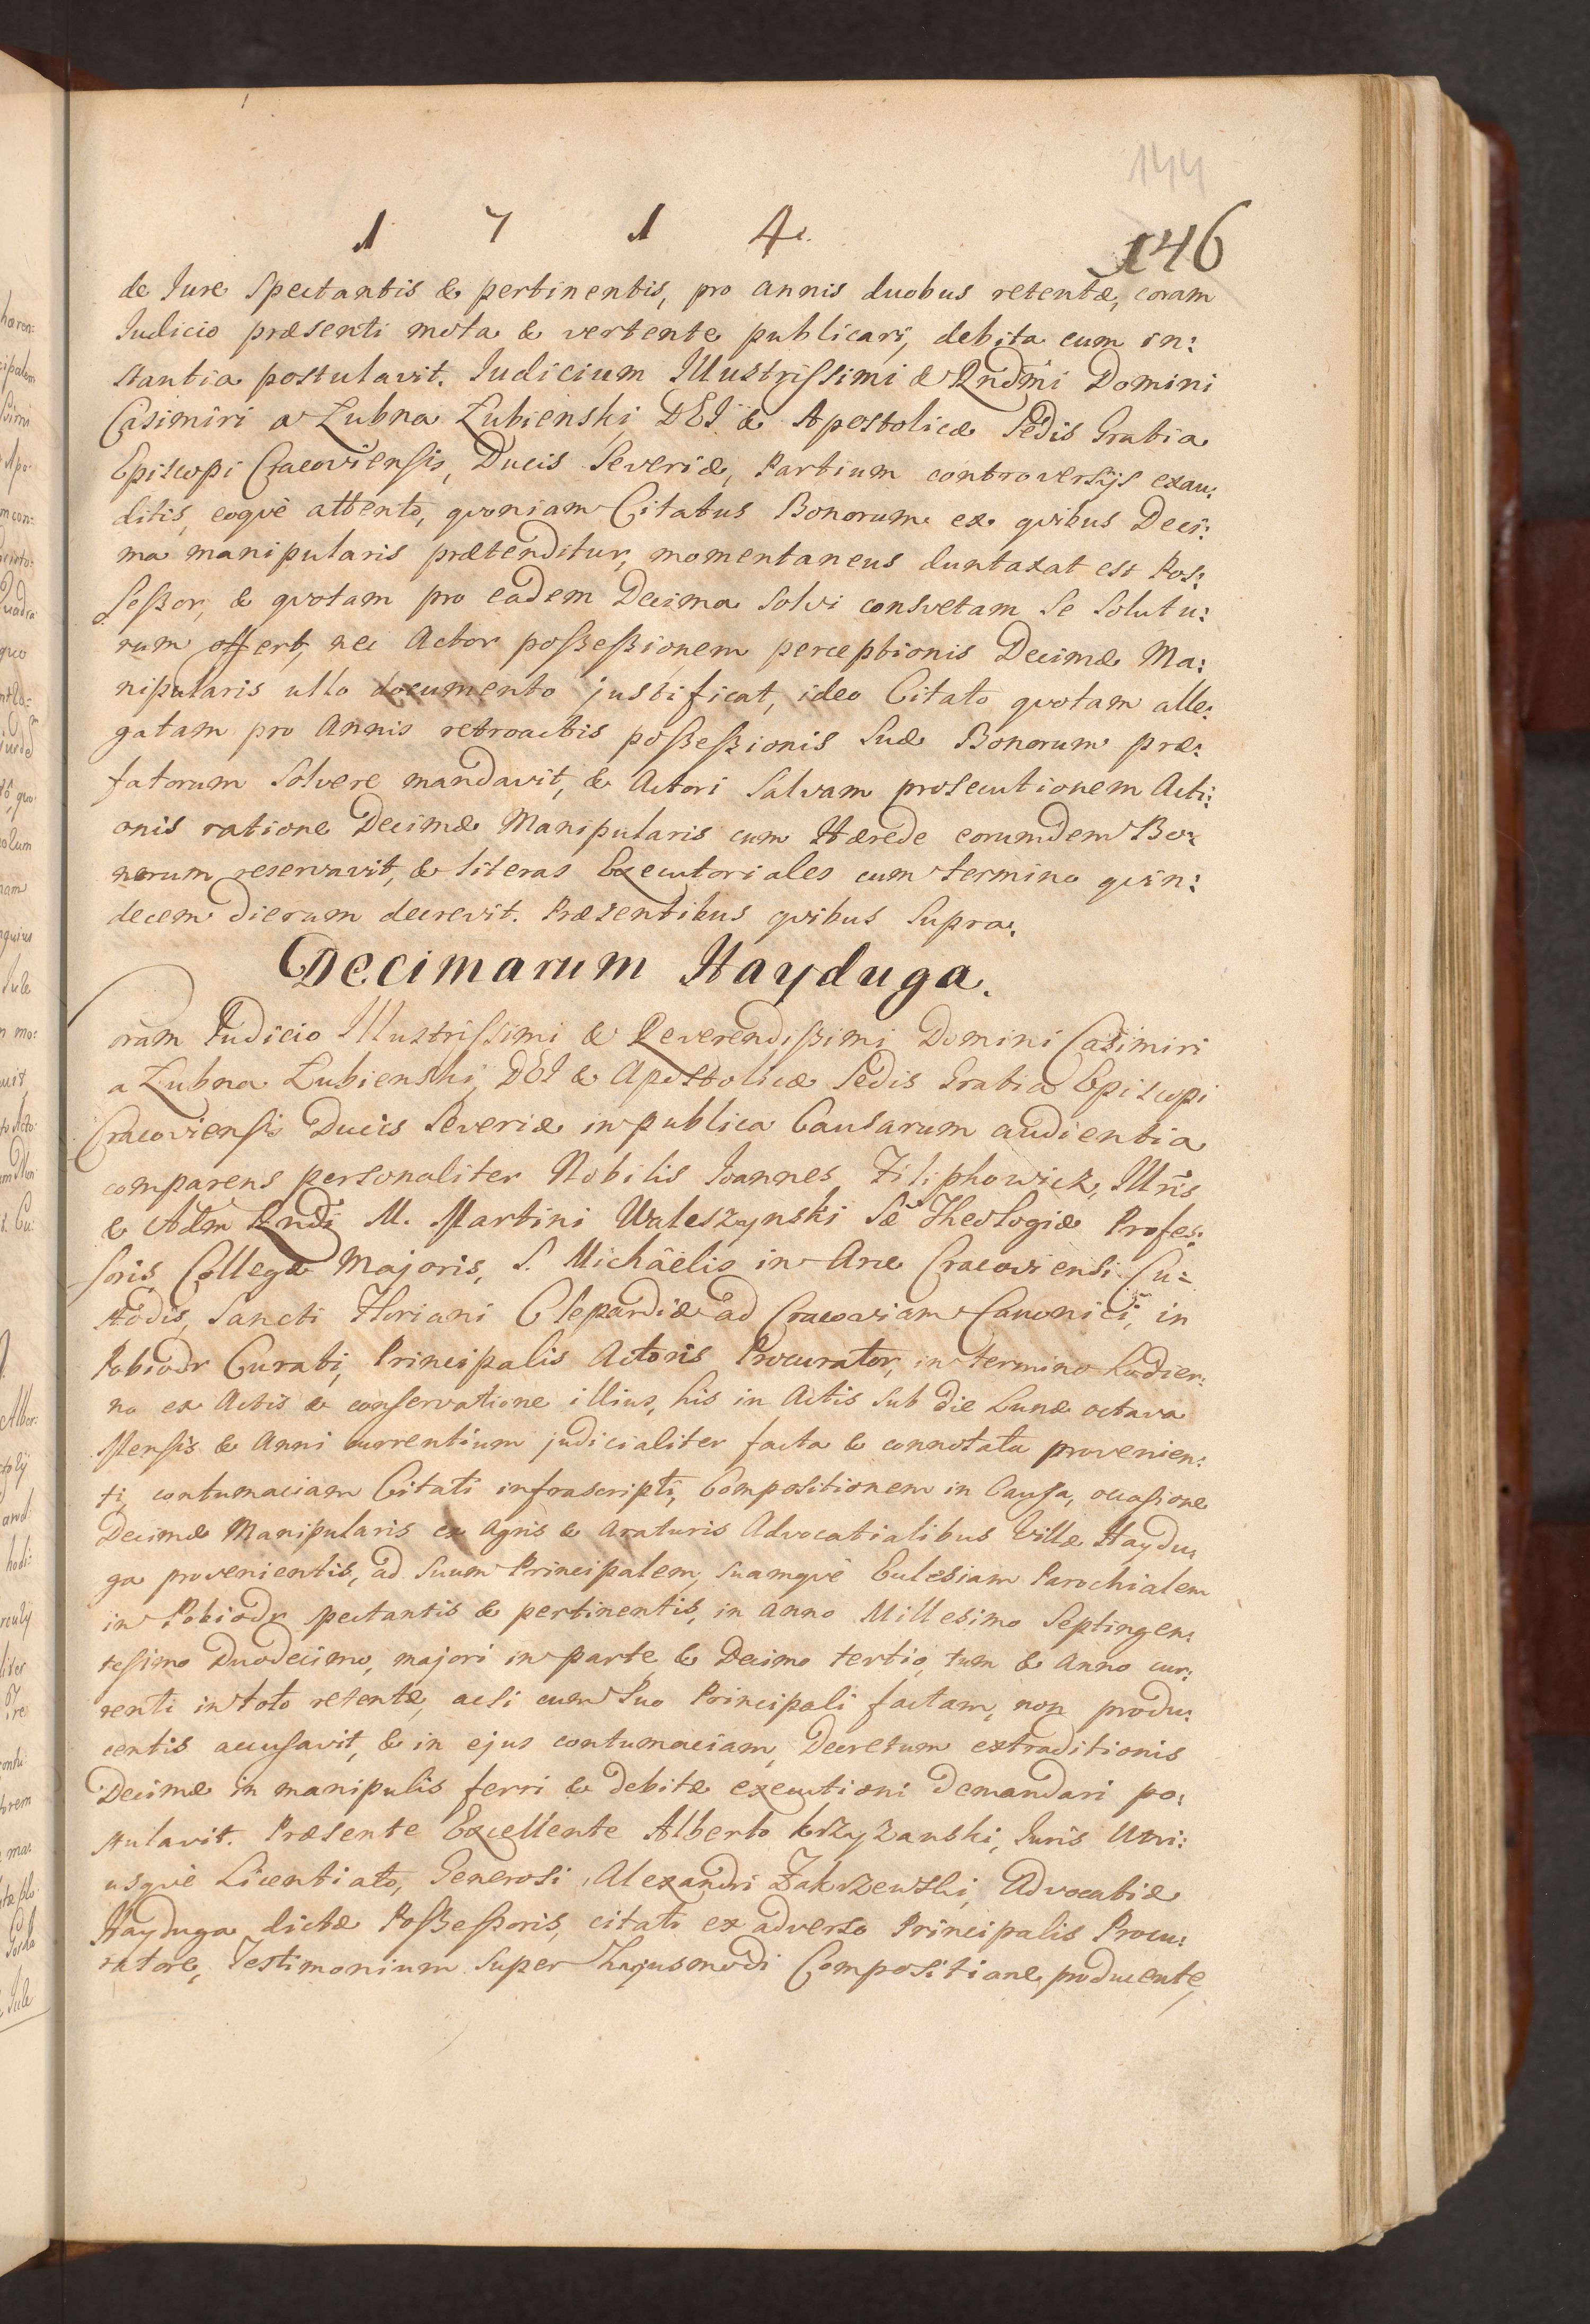 144
1 7 1 4.
146
de Iure Spectantis & pertinentis, pro annis duobus retentæ, coram
Iudicio præsenti mota & vertente publicari, debita cum in:
stantia postulavit. Iudicium Illustrissimi & Rndmi Domini
Casimiri a Łubna Łubienski DEI & Apostolicæ Sedis Gratia
Episcopi Cracoviensis, Ducis Severiæ, Partium controversijs exau:
ditis, eoqvè attento, qvoniam Citatus Bonorum ex qvibus Deci:
ma manipularis prætenditur, momentaneus duntaxat est Pos:
seßor, & qvotam pro eadem Decima solvi consvetam se solutu:
rum offert, nec Actor poßeßionem perceptionis Decimæ Ma:
nipularis ullo documento justificat, ideo Citato qvotam alle:
gatam pro Annis retroactis poßeßionis suæ Bonorum præ:
fatorum solvere mandavit, & Actori salvam prosecutionem Acti:
onis ratione Decimæ Manipularis cum Hærede eorumdem Bo:
norum reservavit, & literas Executoriales cum termino qvin:
decem dierum decrevit. Præsentibus qvibus supra.
Decimarum Hayduga.
Coram Iudicio Illustrissimi & Reverendißimi Domini Casimiri
a Łubna Łubienski, DEI & Apostolicæ Sedis Gratia Episcopi
Cracoviensis Ducis Severiæ in publica Causarum audientia
comparens personaliter Nobilis Ioannes Filiphowicz, Illris
& Adm Rndi M. Martini Waleszynski Sæ Theologiæ Profes:
soris, Collegæ Majoris, S. Michäelis in Arce Cracoviensi Cu:
stodis, Sancti Floriani Clepardiæ ad Cracoviam Canonici, in
Pobiodr Curati, Principalis Actoris Procurator, in termino hodier:
no ex Actis & conservatione illius, his in Actis sub die Lunæ octava
Mensis & Anni currentium judicialiter facta & connotata provenien:
ti, contumaciam Citati infrascripti, Compositionem in Causa, occasione
Decimæ Manipularis ex Agris & Araturis Advocatialibus Villæ Haydu:
ga provenientis, ad suum Principalem, suamqvè Ecclesiam Parochialem
in Pobiodr spectantis & pertinentis, in Anno Millesimo Septingen:
tesimo Duodecimo, majori in parte & Decimo tertio, tum & Anno cur:
renti in toto retentæ, acsi cum suo Principali factam, non produ:
centis accusavit, & in ejus contumaciam, Decretum extraditionis
Decimæ in manipulis ferri & debitæ executioni demandari po:
stulavit. Præsente Excellente Alberto Krzyżanski, Iuris Utri:
usqvè Licentiato, Generosi Alexandri Zakrzewski, Advocatiæ
Hayduga dictæ Poßeßoris, citati ex adverso Principalis Procu:
ratore, Testimonium super hujusmodi Compositione producente,